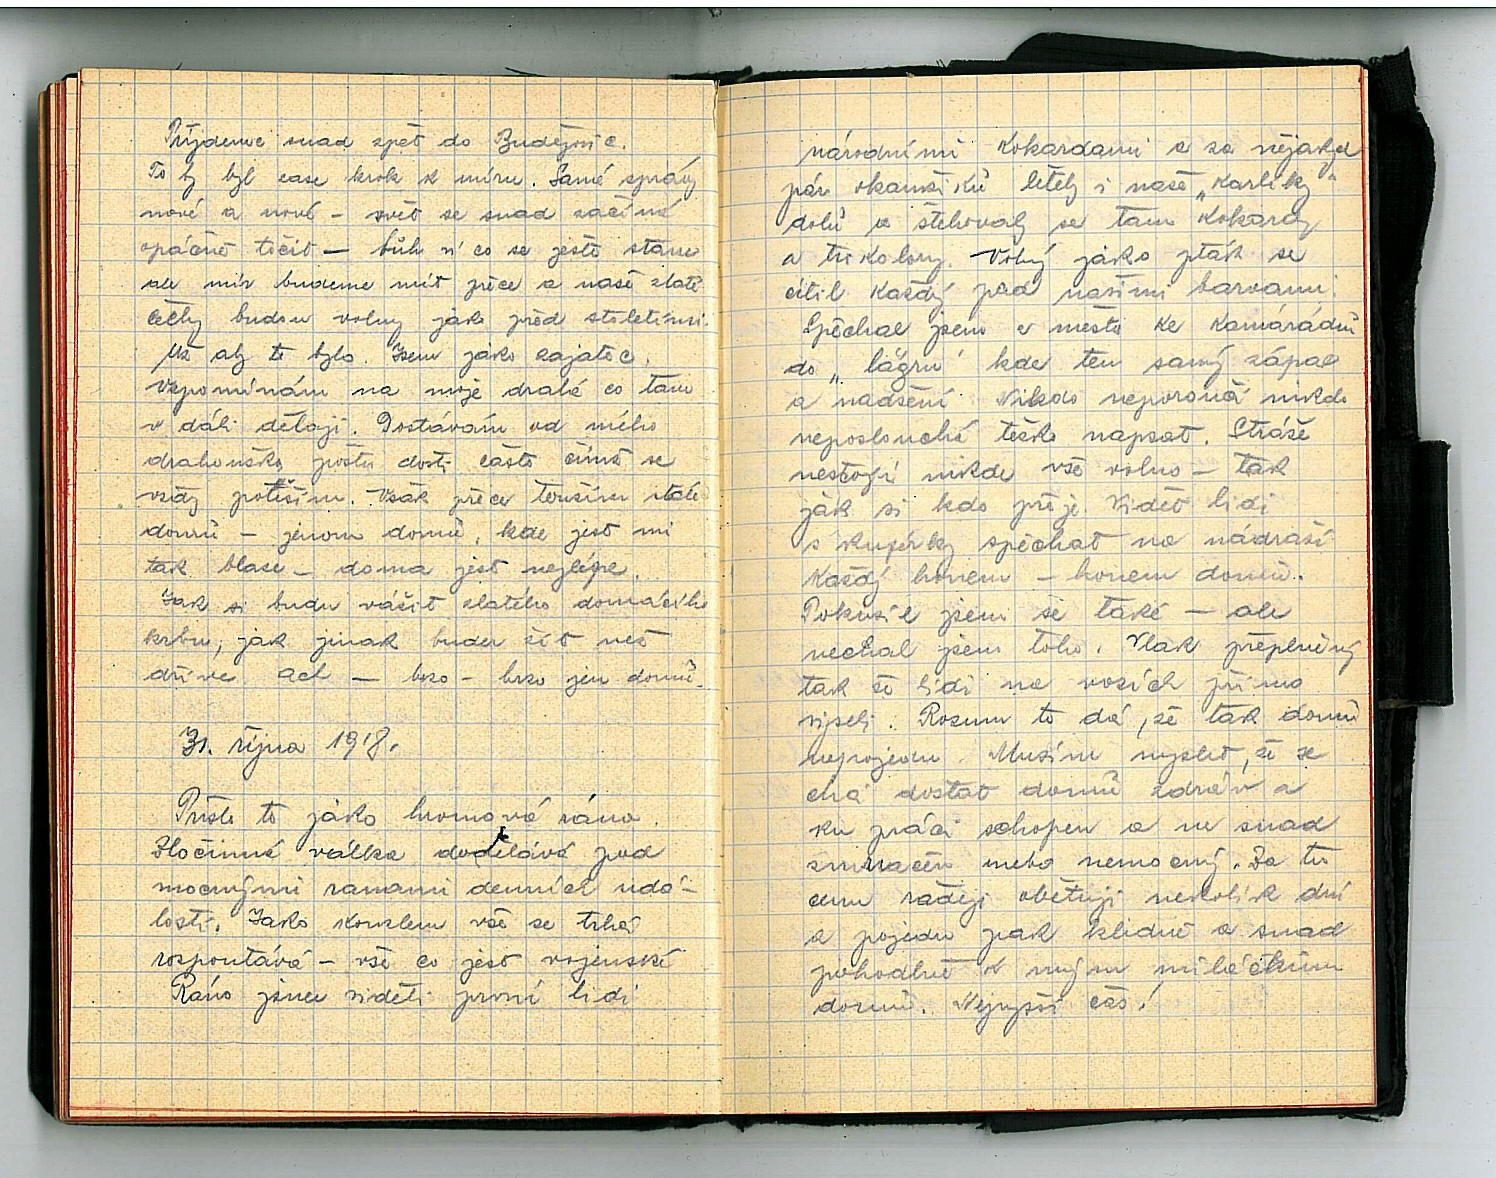 Přijdeme snad zpět do Budějovic.
To by byl zase krok k míru. Samé zprávy
nové a nové – svět se snad začíná
opáčně točit – bůh ví co se ještě stane
ale mír budeme mít přece a naše zlaté
Čechy budou volny jako před stoletími.
Už aby to bylo. Jsem jako zajatec.
Vzpomínám na moje drahé co tam
v dáli dělají. Dostávám od mého
drahouška poštu dosti často čímž se
vždy potěším. Však přece toužím stále
domů – jenom domů, kde jest mi
tak blaze – doma jest nejlépe.
Jak si budu vážit zlatého domácího
krbu, jak jinak budu žít než
dříve. Ach – brzo – brzo jen domů.
31. října 1918.
Přišlo to jako hromová rána.
Zločinná válka dodělává pod
mocnými ranami denních udá-
lostí. Jako kouzlem vše se trhá
rozpoutává – vše co jest vojenské
Ráno jsme viděli první lidi
národními kokardami a za nějakých
pár okamžiků letěly i naše „Karlíky"
dolů a stěhovaly se tam kokardy
a trikolory. Volný jako pták se
cítil každý pod našimi barvami.
Spěchal jsem z města ke kamarádům
do „lágru" kde ten samý zápal
a nadšení. Nikdo neporoučí nikdo
neposlouchá těžko napsat. Stráže
nestojí nikde vše volno – tak
jak si kdo přeje. Vidět lidi
s kufírky spěchat na nádraží
Každý honem – honem domů.
Pokusil jsem se také – ale
nechal jsem toho. Vlak přeplněný
tak že lidi na vozích přímo
viseli. Rozum to dá, že tak domů
nepojedu. Musím myslet, že se
chci dostat domů zdráv a
ku práci schopen a ne snad
zmrzačen nebo nemocný. Za tu
cenu raději obětuji několik dní
a pojedu pak klidně a snad
pohodlně k mým miláčkům
domů. Nejvyšší čas!